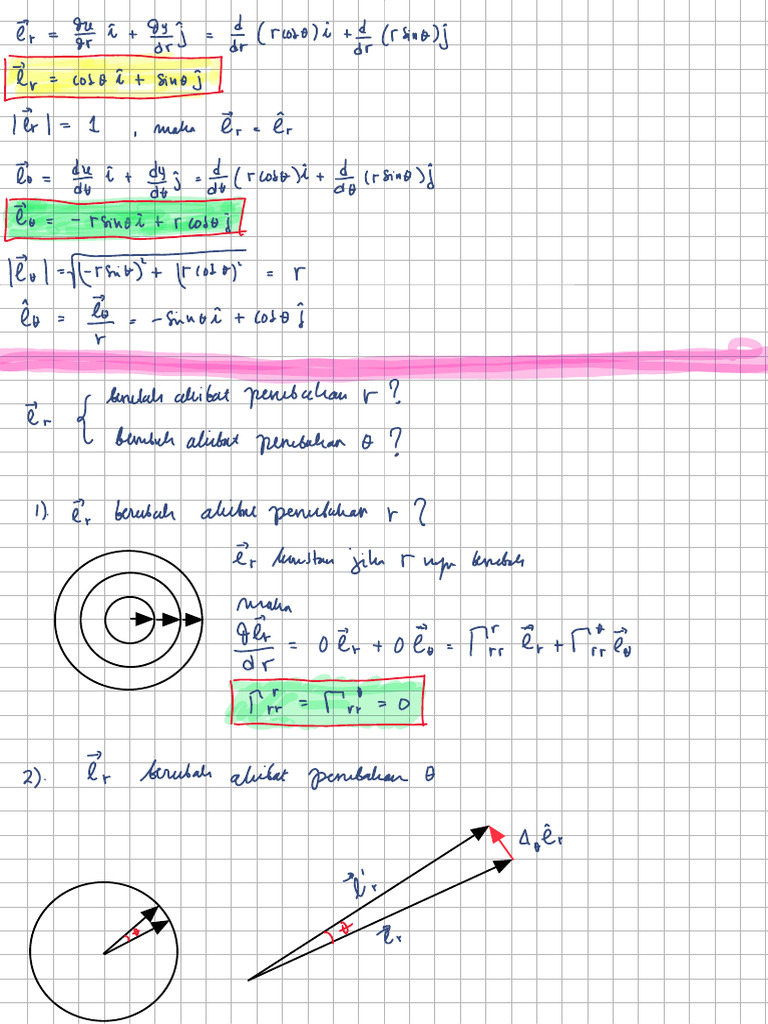 e⃗r = dx/dr î + dy/dr ĵ = d/dr (r cosθ) î + d/dr (r sinθ) ĵ
e⃗r = cosθ î + sinθ ĵ
|e⃗r| = 1 , maka e⃗r = êr
e⃗θ = dx/dθ î + dy/dθ ĵ = d/dθ (r cosθ) î + d/dθ (r sinθ) ĵ
e⃗θ = - r sinθ î + r cosθ ĵ
|e⃗θ| = √((-r sinθ)² + (r cosθ)²) = r
êθ = e⃗θ/r = - sinθ î + cosθ ĵ
e⃗r { berubah akibat perubahan r ?
berubah akibat perubahan θ ?
1). e⃗r berubah akibat perubahan r ?
e⃗r konstan jika r nya berubah
maka
de⃗r/dr = 0 e⃗r + 0 e⃗θ = Γ^r_rr e⃗r + Γ^θ_rr e⃗θ
Γ^r_rr = Γ^θ_rr = 0
2). e⃗r berubah akibat perubahan θ
Δθ êr
e⃗'r
θ
e⃗r
θ